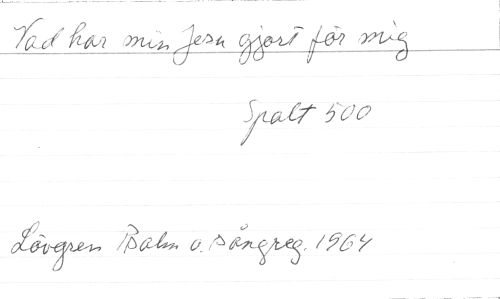 Vad har min Jesu gjort för mig
Spalt 500
Lövgren Psalm o. sångreg. 1964